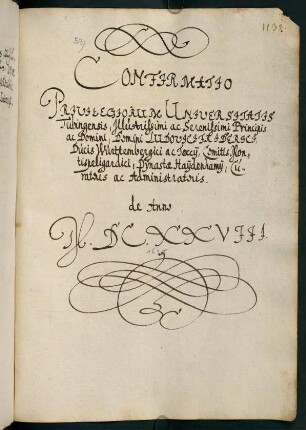 CONFIRMATIO
PRIVILEGIORUM UNIVERSITATIS
Tubingensis, Illustrissimi ac Serenissimi Principis
ac Domini, Domini LUDOVICI FRIDERICI
Ducis Würtembergici ac Teccij, Comitis Mon-
tispeligardici, Dynastæ Haydenhamij, Cu-
ratoris ac Administratoris.
de Anno
M.DC.XXVIII.